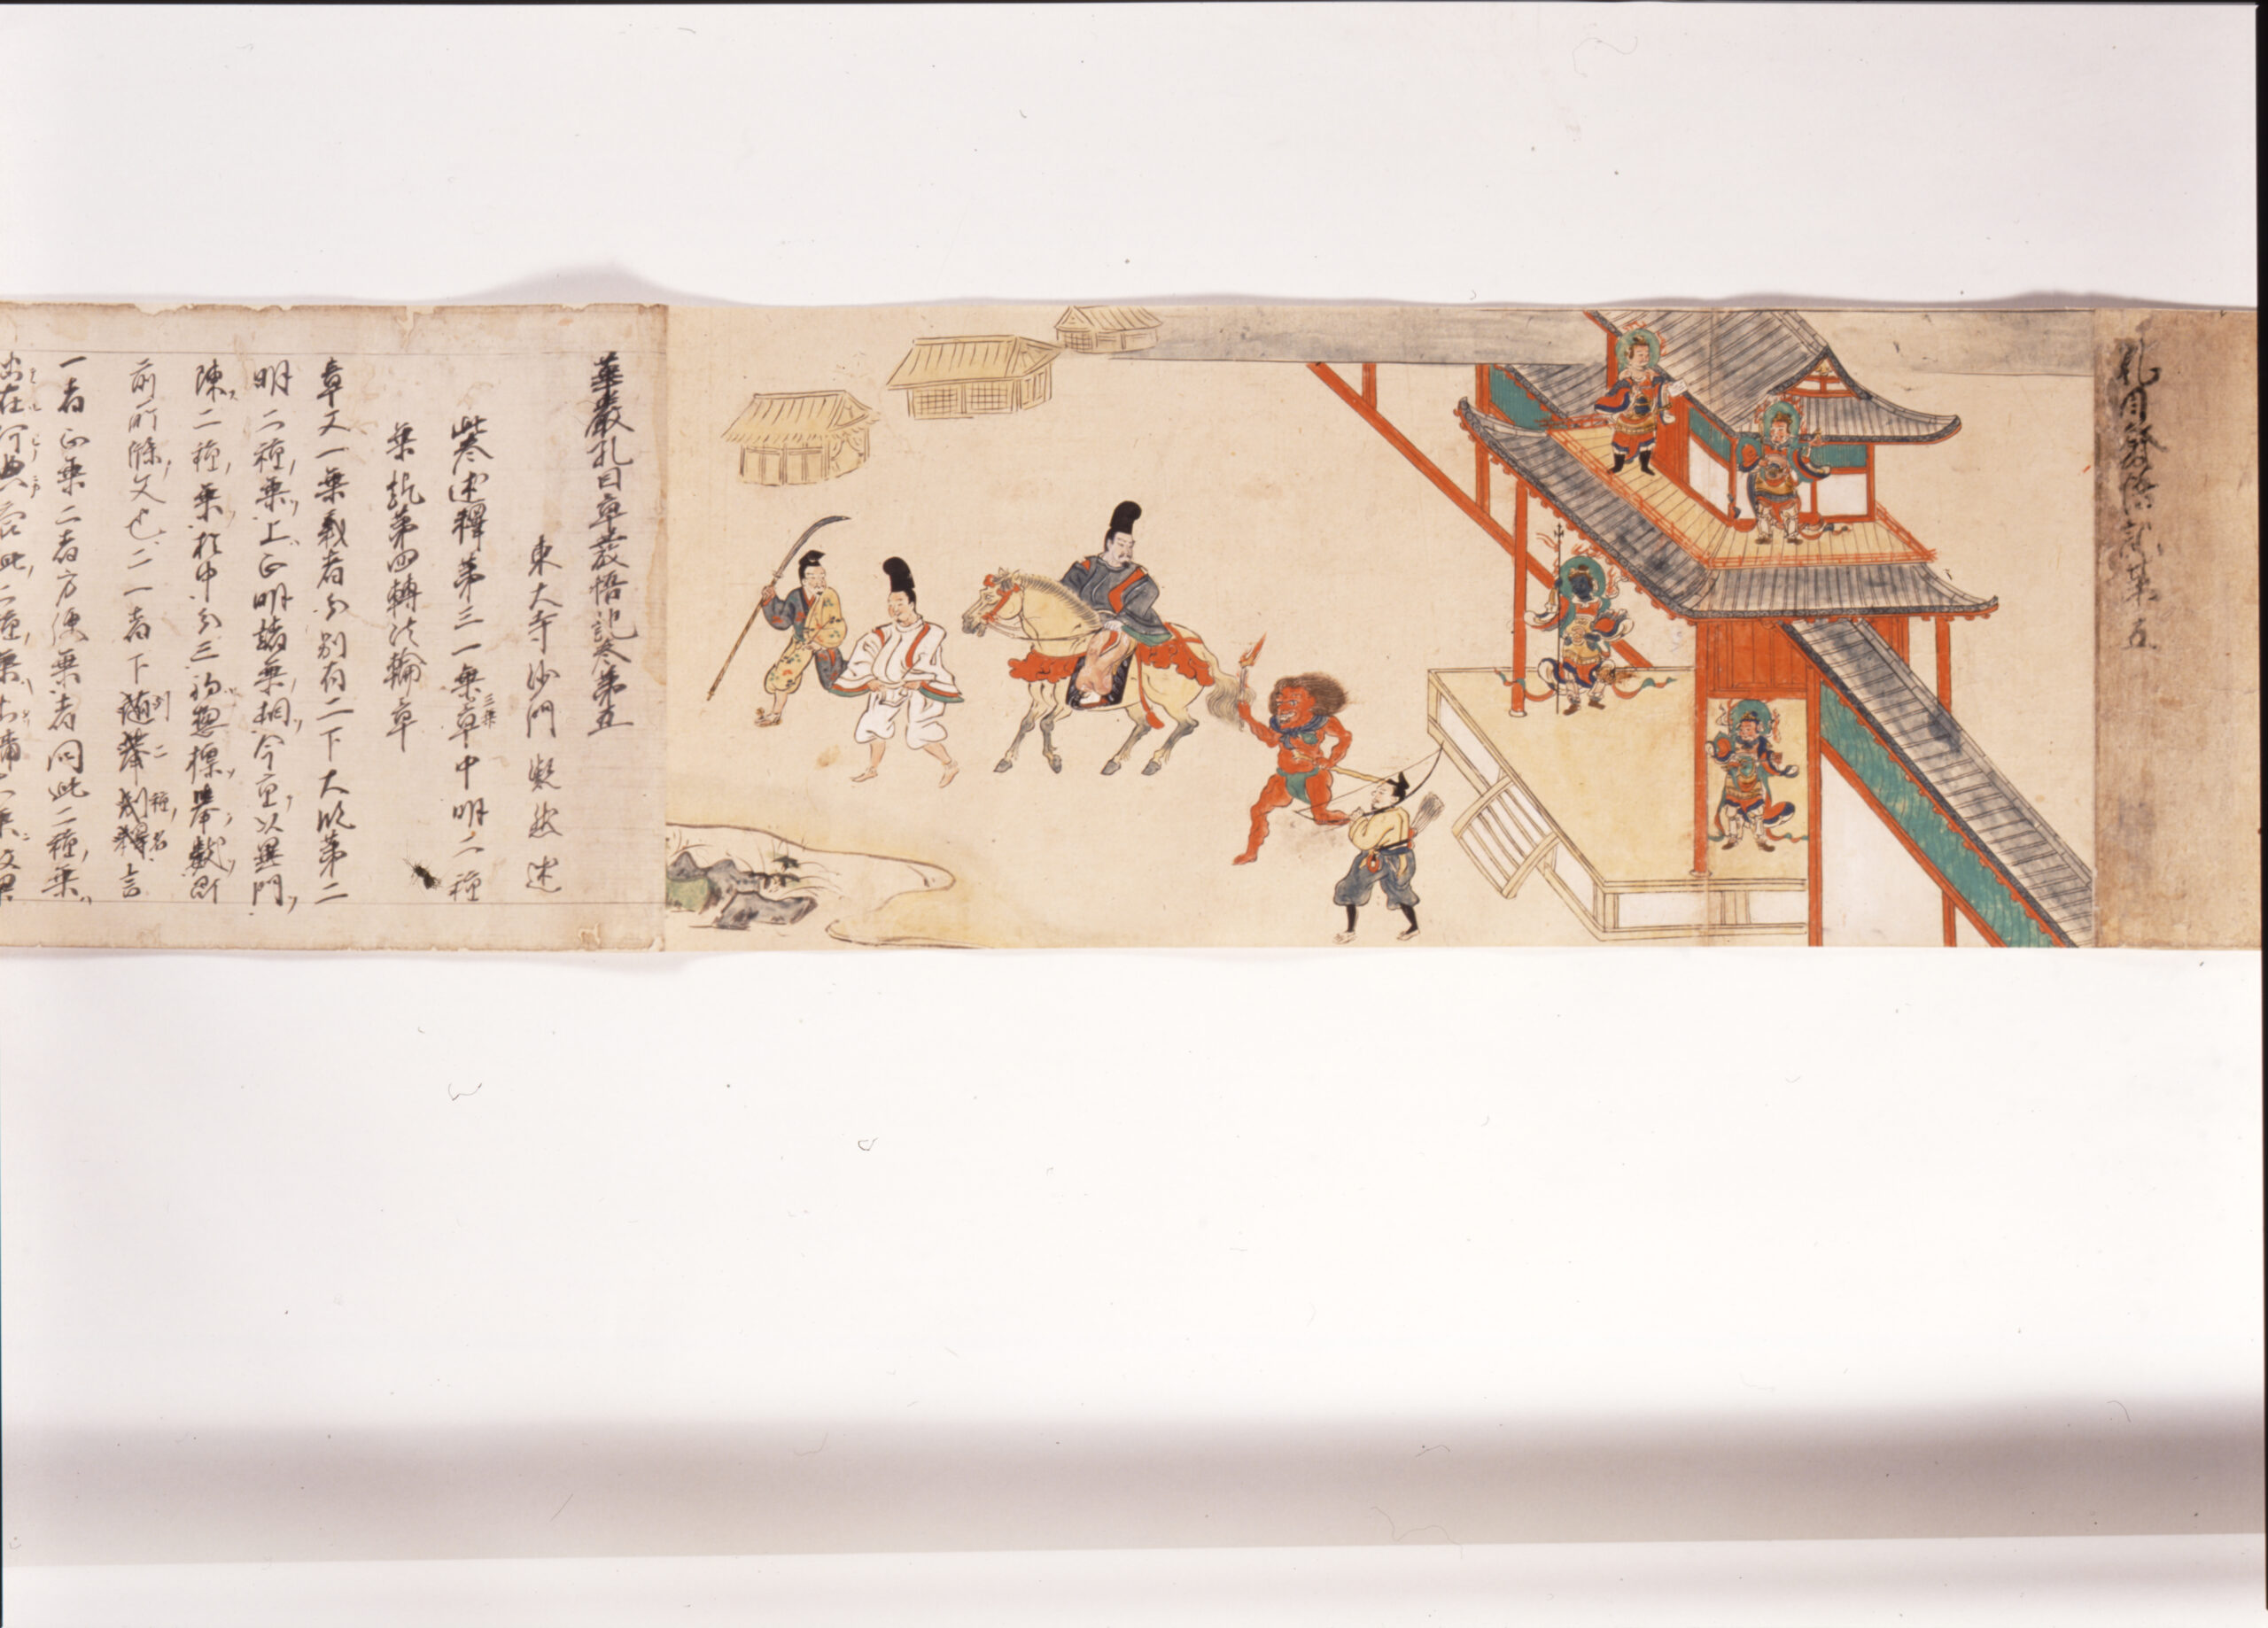 孔目發悟記第五
華嚴孔目章發悟記卷第五
東大寺沙門凝然述
此卷述釋第三一乘三乘章中明二種
乘訖第四轉法輪章
章文一乘義者分別有二下大段第二
明二種乘上正明諸乘相今重以異門
陳二種乘於中分三初惣標擧數即
前所牒文也二一者下隨擧別釋言
一者正乘二者方便乘者問此二種乘
出在何典